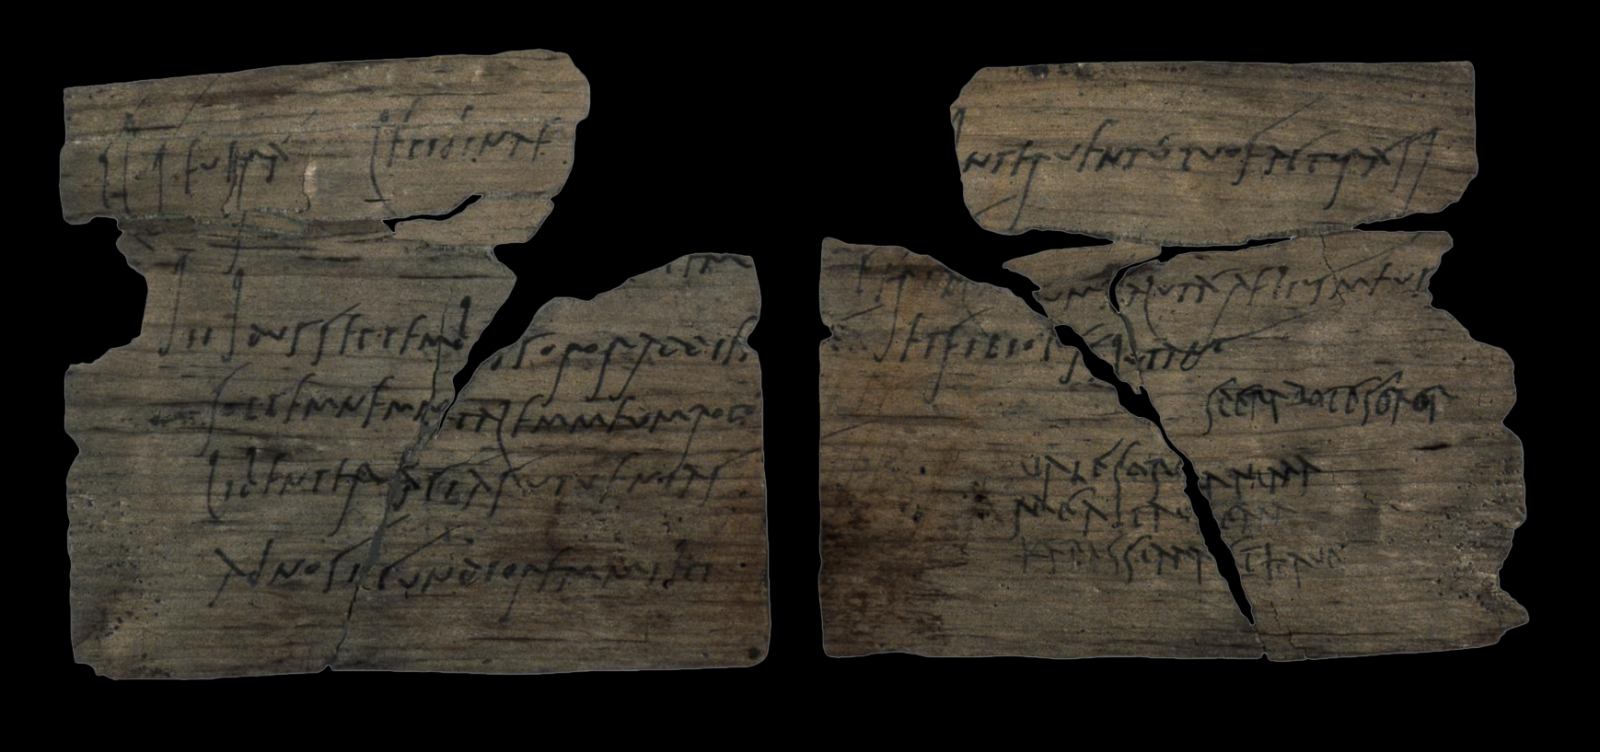 Cl Seuera Lepidinae
tem
iii Idus Septembr soror ad diem
sollemnem natalem meum rogo
libenter facias ut uenias
ad nos iucundiorem mihi
interuentu tuo factura si
Cerial uum saluta Aelius meus
et filiolus salutant
sperabo te soror
uale soror anima
mea ita ualeam
karissima et haue